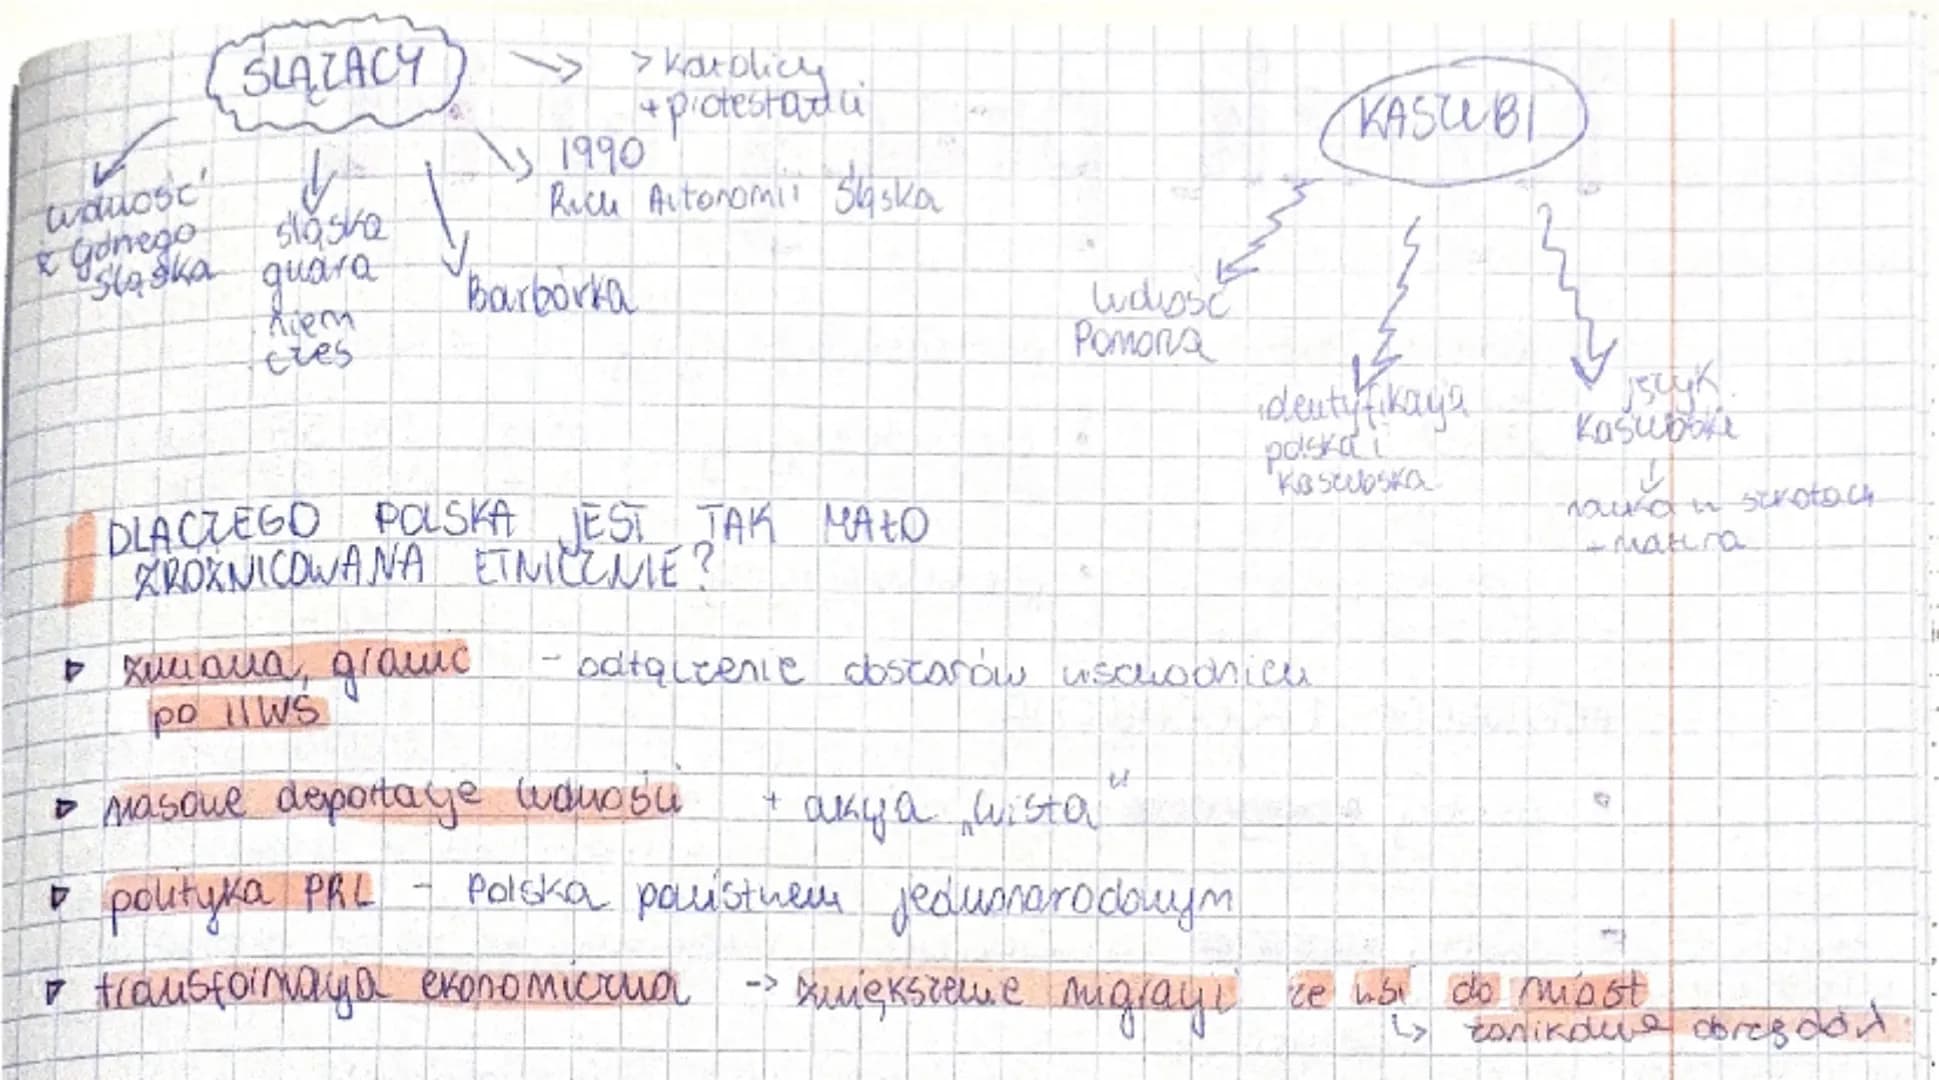 ŚLĄZACY
> katolicy
+ protestanci
1990
Ruch Autonomii Śląska
ludność
z Górnego
Śląska
śląska
gwara
niem
czes
Barbórka
KASZUBI
ludność
Pomorza
identyfikacja
polska i
kaszubska
język
kaszubski
↓
nauka w szkołach
+ matura
DLACZEGO POLSKA JEST TAK MAŁO
ZRÓŻNICOWANA ETNICZNIE?
zmiana granic - odłączenie obszarów wschodnich
po IIWŚ
masowe deportacje ludności + akcja „Wisła"
polityka PRL - Polska państwem jednonarodowym
transformacja ekonomiczna -> zwiększenie migracji ze wsi do miast
↳ zanikanie obrzędów